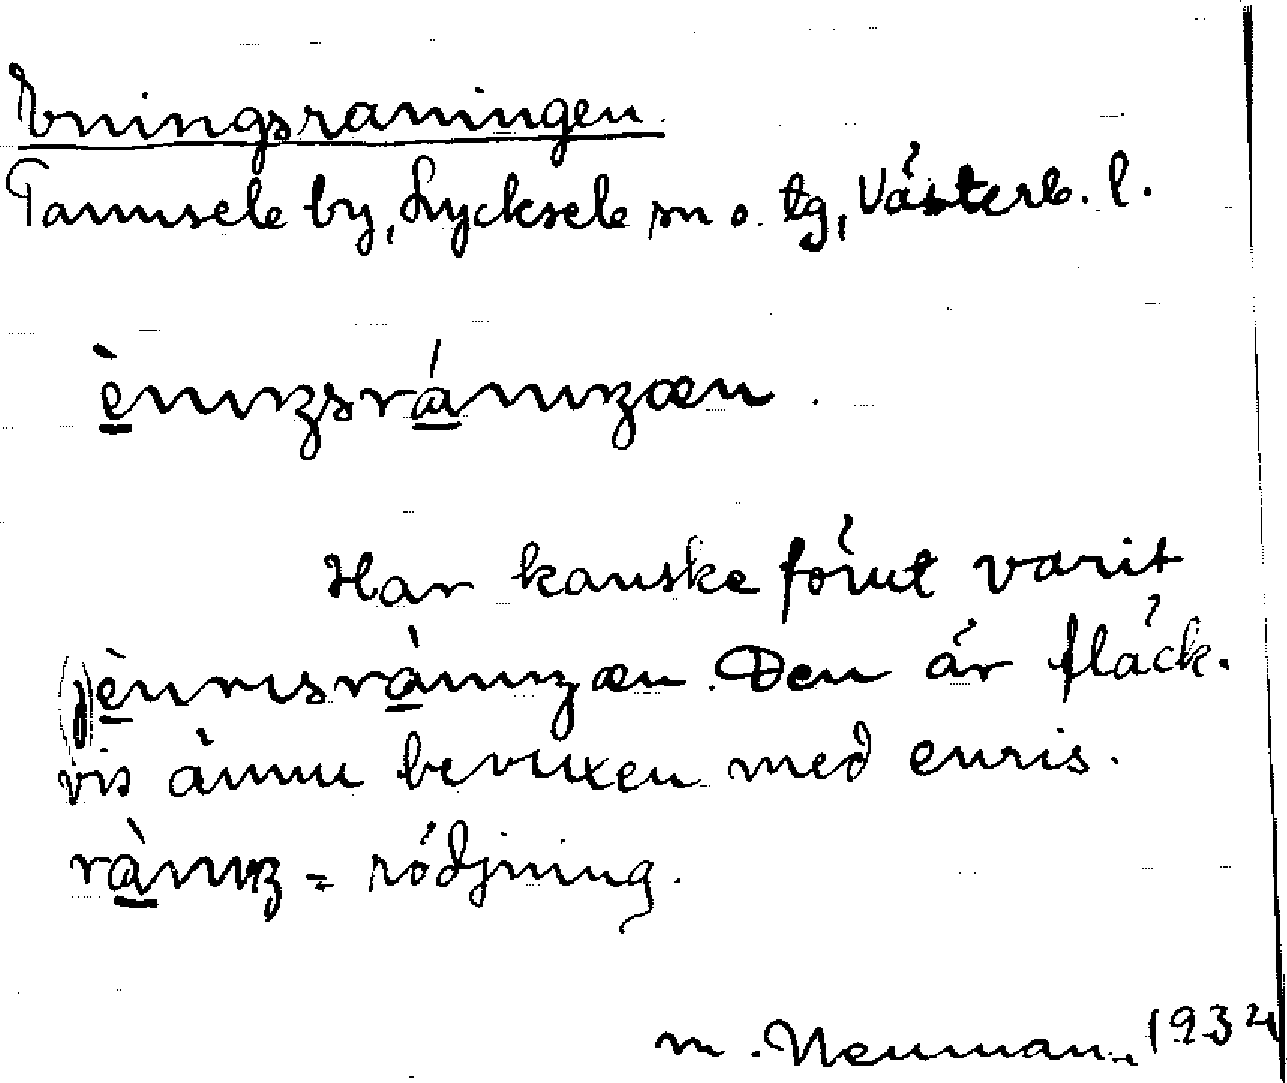 Eningsraningen
Tannsele by, Lycksele sn o. tg, Västerb. l.
ènıŋsránıŋæn.
Har kanske förut varit
(j)ènrısrànıŋæn. Den är fläck-
vis ännu bevuxen med enris.
rànıŋ = rödjning.
M. Neuman. 1934